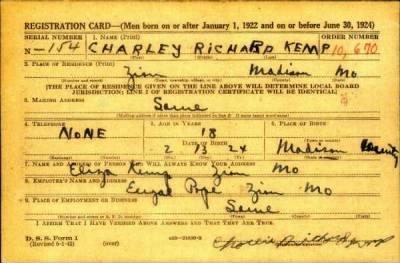 REGISTRATION CARD—(Men born on or after January 1, 1922 and on or before June 30, 1924)
SERIAL NUMBER 1. NAME (Print) ORDER NUMBER
N-154 CHARLEY RICHARD KEMP 10,670
2. PLACE OF RESIDENCE (Print)
Zion Madison Mo
(Number and street) (Town, township, village, or city) (County) (State)
[THE PLACE OF RESIDENCE GIVEN ON THE LINE ABOVE WILL DETERMINE LOCAL BOARD
JURISDICTION; LINE 2 OF REGISTRATION CERTIFICATE WILL BE IDENTICAL]
3. MAILING ADDRESS
Same
[Mailing address if other than place indicated on line 2. If same insert word same]
4. TELEPHONE 5. AGE IN YEARS 6. PLACE OF BIRTH
NONE 18 Madison County
DATE OF BIRTH
2 13 24 Mo
7. NAME AND ADDRESS OF PERSON WHO WILL ALWAYS KNOW YOUR ADDRESS
Kemp Zion Mo
8. EMPLOYER'S NAME AND ADDRESS
Pope Zion Mo
9. PLACE OF EMPLOYMENT OR BUSINESS
Same
(Number and street or R. F. D. number) (Town) (County) (State)
I AFFIRM THAT I HAVE VERIFIED ABOVE ANSWERS AND THAT THEY ARE TRUE.
D. S. S. Form 1
(Revised 6-9-42) (over)